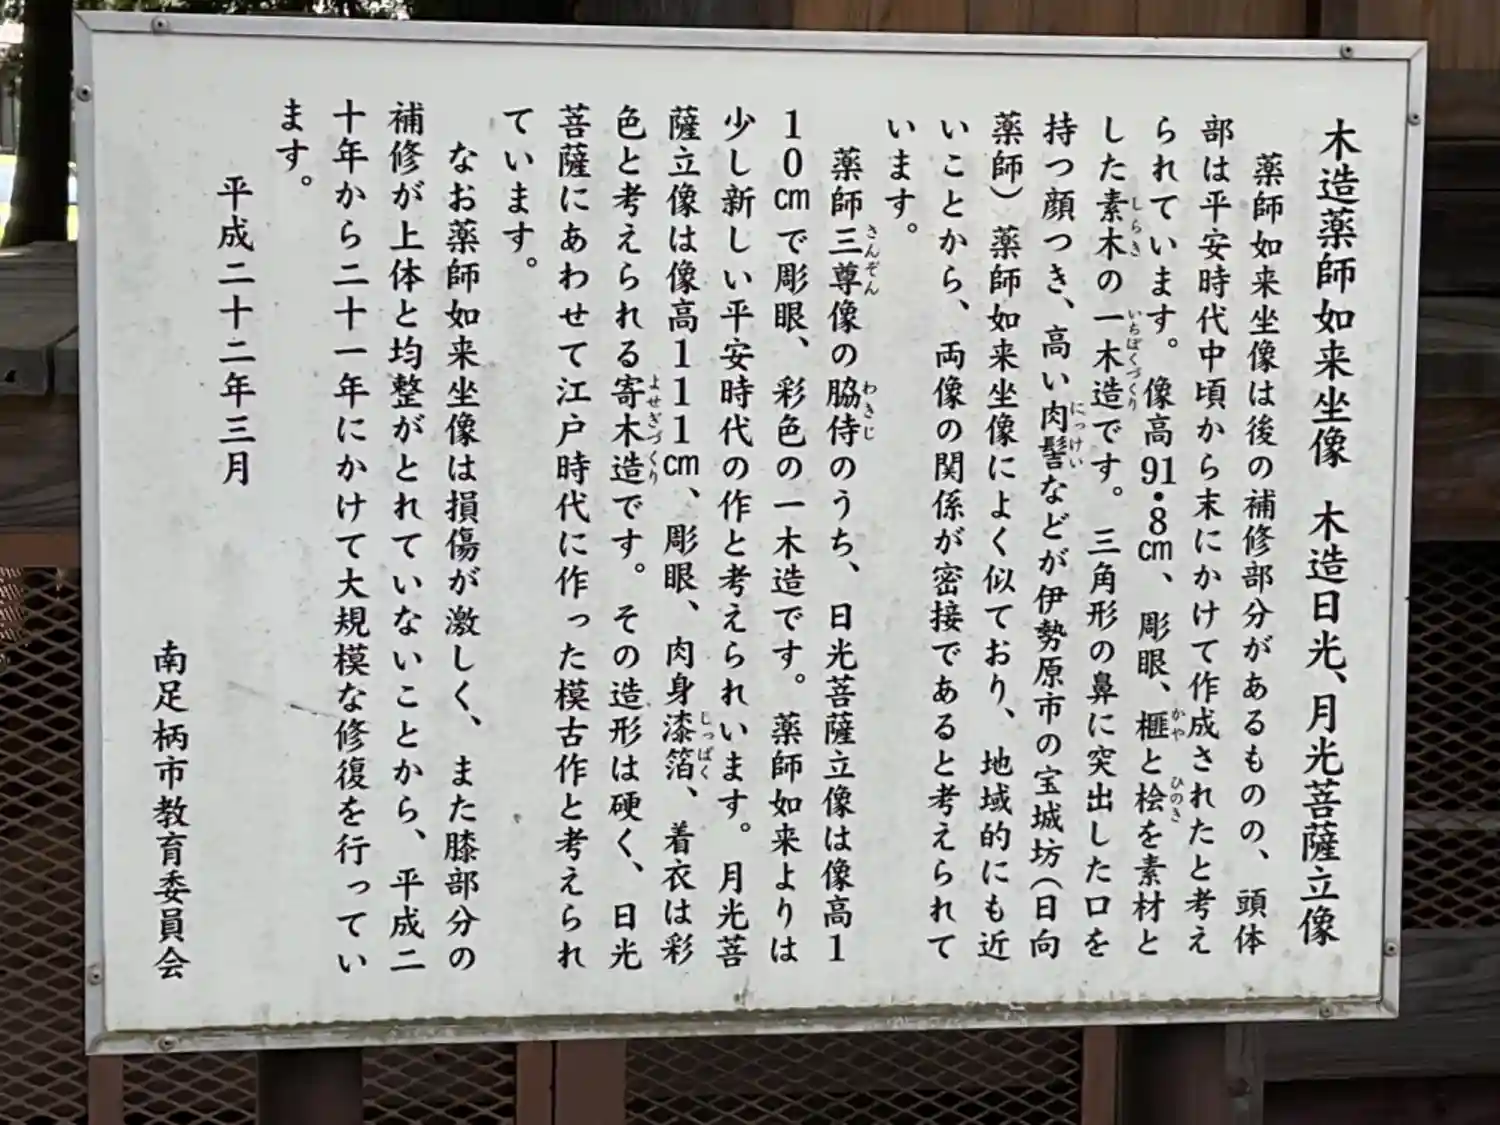 木造薬師如来坐像　木造日光、月光菩薩立像
薬師如来坐像は後の補修部分があるものの、頭体
部は平安時代中頃から末にかけて作成されたと考え
られています。像高91・8㎝、彫眼、榧と桧を素材と
した素木の一木造です。三角形の鼻に突出した口を
持つ顔つき、高い肉髻などが伊勢原市の宝城坊（日向
薬師）薬師如来坐像によく似ており、地域的にも近
いことから、両像の関係が密接であると考えられて
います。
薬師三尊像の脇侍のうち、日光菩薩立像は像高1
10㎝で彫眼、彩色の一木造です。薬師如来よりは
少し新しい平安時代の作と考えられいます。月光菩
薩立像は像高111㎝、彫眼、肉身漆箔、着衣は彩
色と考えられる寄木造です。その造形は硬く、日光
菩薩にあわせて江戸時代に作った模古作と考えられ
ています。
なお薬師如来坐像は損傷が激しく、また膝部分の
補修が上体と均整がとれていないことから、平成二
十年から二十一年にかけて大規模な修復を行ってい
ます。
平成二十二年三月
南足柄市教育委員会